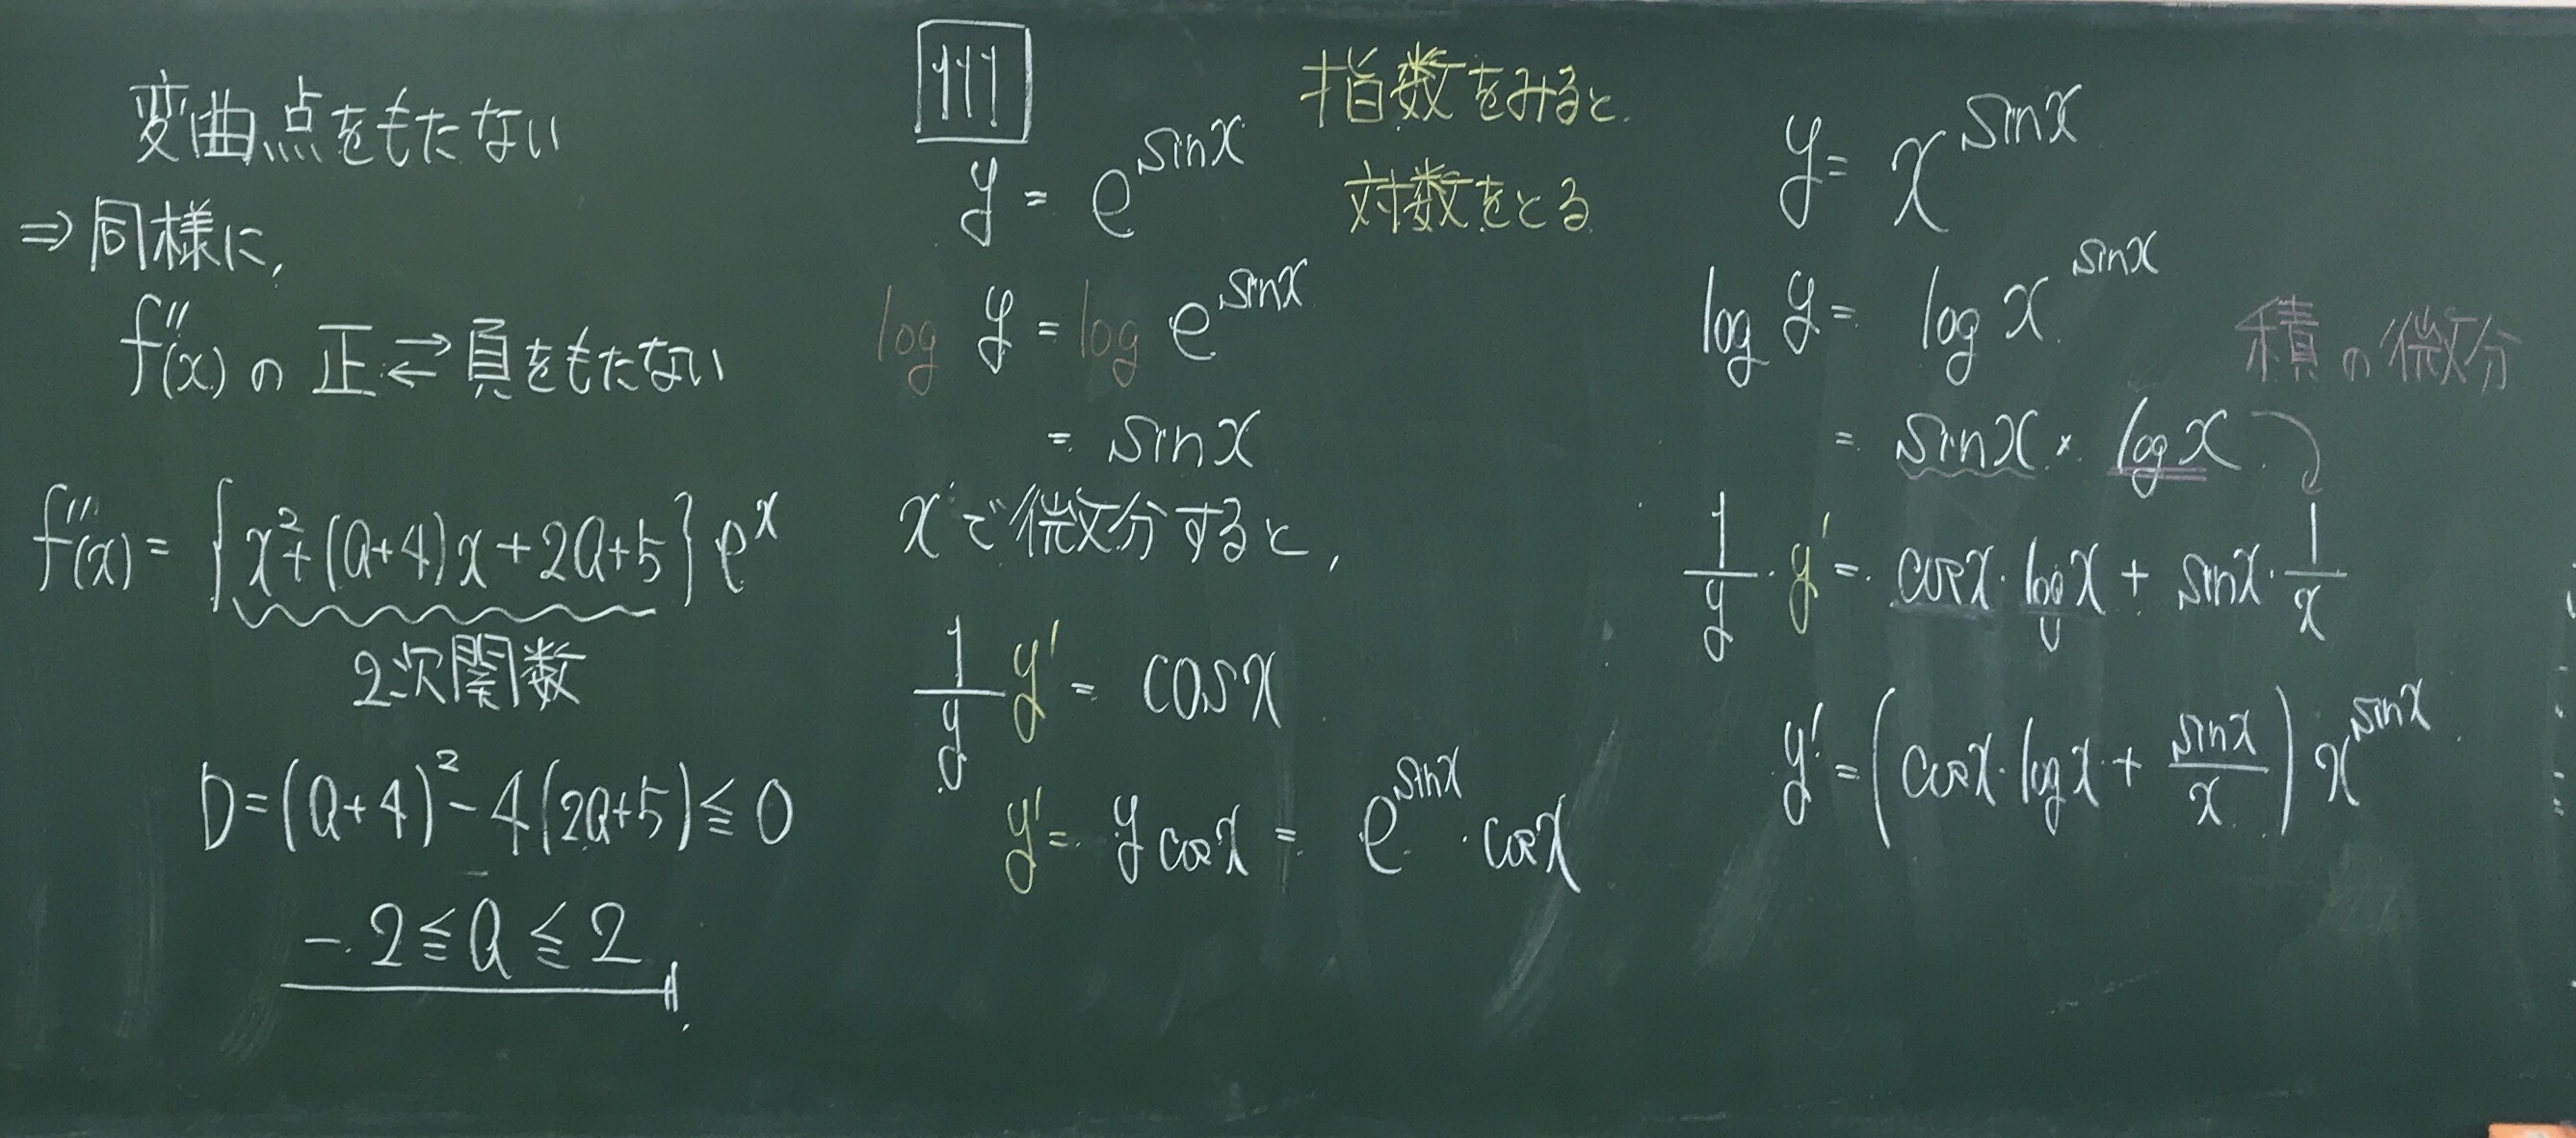 変曲点をもたない
⇒ 同様に,
f''(x) の 正 ⇄ 負をもたない
f''(x) = {x²+(a+4)x+2a+5}eˣ
2次関数
D=(a+4)²-4(2a+5)≦0
-2≦a≦2
111
指数をみると
対数をとる
y = e^{sinx}
log y = log e^{sinx}
= sinx
xで微分すると,
\frac{1}{y} y' = cosx
y' = y cosx = e^{sinx}・cosx
y = x^{sinx}
log y = log x^{sinx}
積の微分
= sinx × logx
\frac{1}{y}・y' = cosx・logx + sinx・\frac{1}{x}
y' = (cosx・logx + \frac{sinx}{x}) x^{sinx}